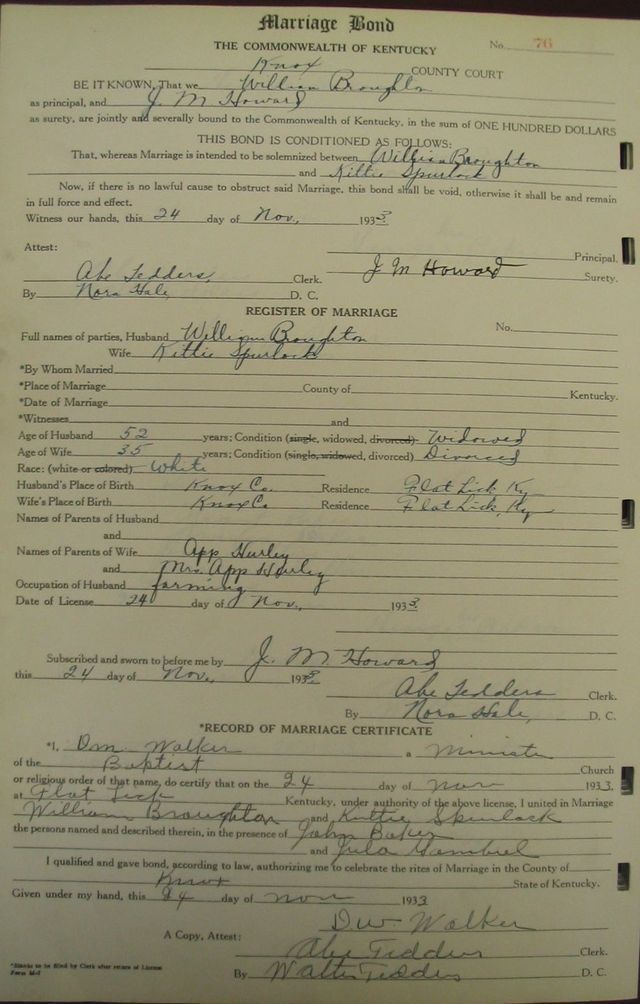 Marriage Bond
THE COMMONWEALTH OF KENTUCKY No. 76
Knox COUNTY COURT
BE IT KNOWN, That we William Broughton
as principal, and J. M Howard
as surety, are jointly and severally bound to the Commonwealth of Kentucky, in the sum of ONE HUNDRED DOLLARS
THIS BOND IS CONDITIONED AS FOLLOWS:
That, whereas Marriage is intended to be solemnized between William Broughton
and Kittie Spurlock
Now, if there is no lawful cause to obstruct said Marriage, this bond shall be void, otherwise it shall be and remain
in full force and effect.
Witness our hands, this 24 day of Nov, 1933
Attest:
Principal.
Abe Tedders, Clerk. J M Howard Surety.
By Nora Hale, D. C.
REGISTER OF MARRIAGE
Full names of parties, Husband William Broughton No.
Wife Kittie Spurlock
*By Whom Married
*Place of Marriage County of Kentucky.
*Date of Marriage
*Witnesses and
Age of Husband 52 years; Condition (single, widowed, divorced) Widowed
Age of Wife 35 years; Condition (single, widowed, divorced) Divorced
Race: (white or colored) White
Husband's Place of Birth Knox Co. Residence Flat Lick, Ky
Wife's Place of Birth Knox Co Residence Flat Lick, Ky
Names of Parents of Husband
and
Names of Parents of Wife App Hurley
and Mrs. App Hurley
Occupation of Husband farming
Date of License 24 day of Nov, 1933
Subscribed and sworn to before me by J. M Howard
this 24 day of Nov, 1933
Abe Tedders Clerk.
By Nora Hale, D. C.
*RECORD OF MARRIAGE CERTIFICATE
*I, Walker a Minister
of the Baptist Church
or religious order of that name, do certify that on the 24 day of Nov 1933.
at Flat Lick Kentucky, under authority of the above license, I united in Marriage
William Broughton and Kittie Spurlock
the persons named and described therein, in the presence of John Baker
and Gambrel
I qualified and gave bond, according to law, authorizing me to celebrate the rites of Marriage in the County of
Knox State of Kentucky.
Given under my hand, this 24 day of nov 1933
Walker
A Copy, Attest: Abe Tedders Clerk.
By Walter Tedders D. C.
*Blanks to be filled by Clerk after return of License